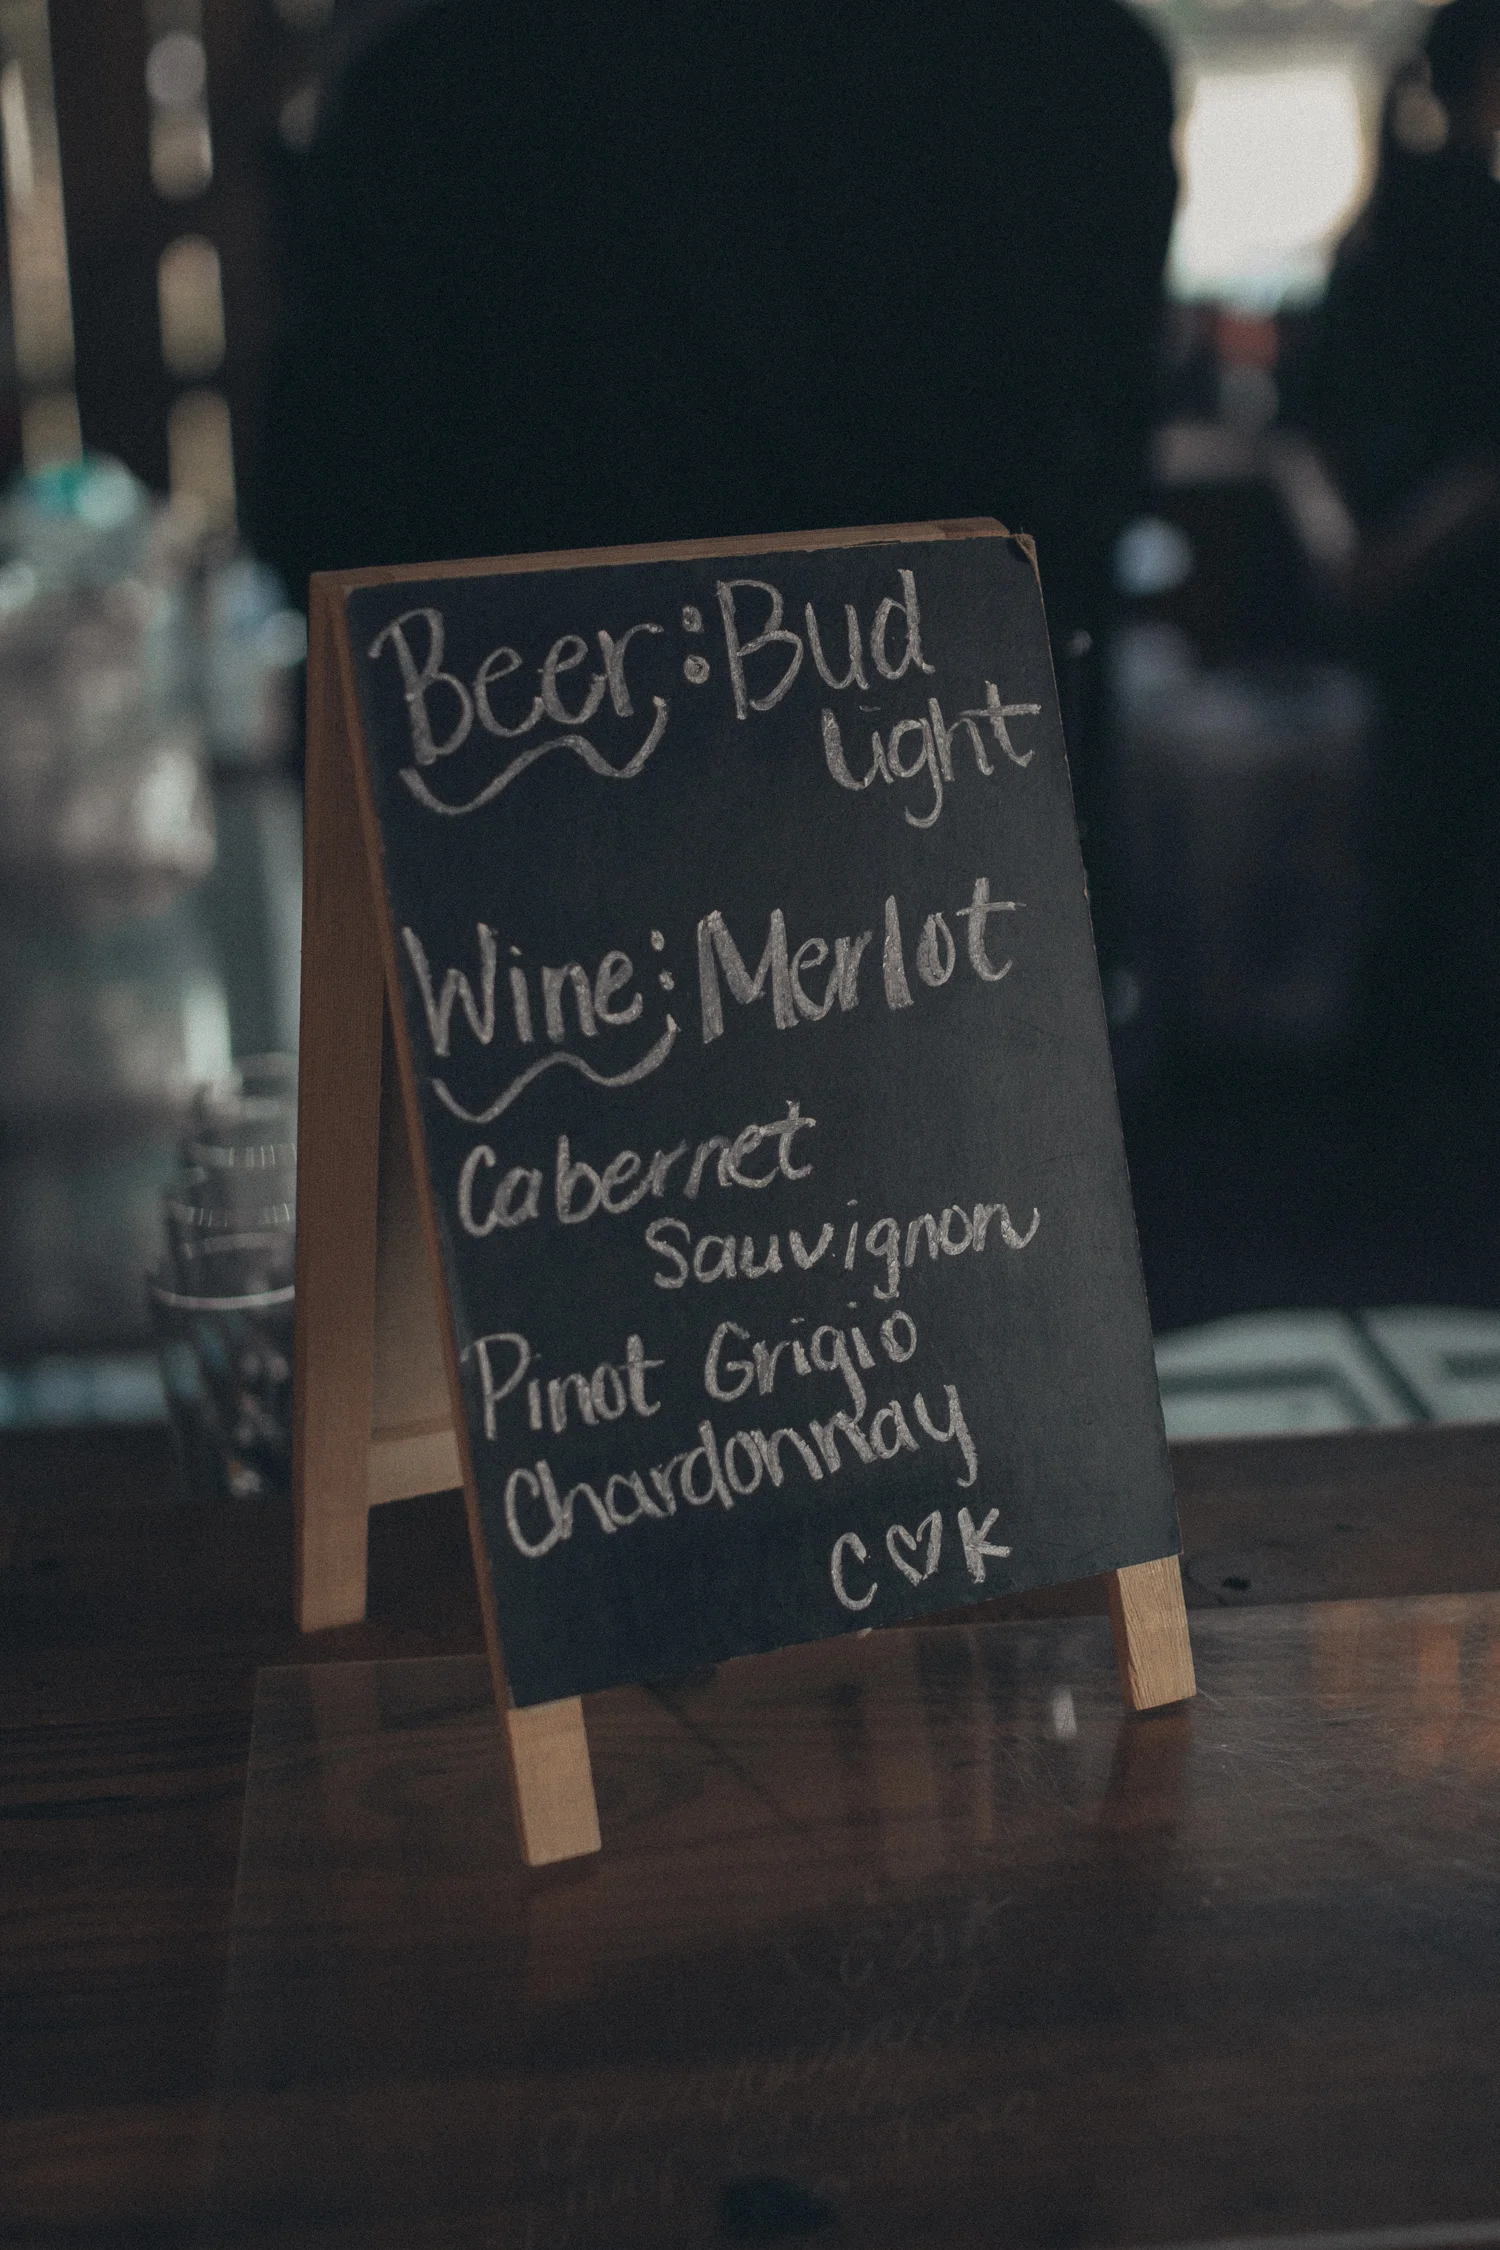 Beer: Bud
Light
Wine: Merlot
Cabernet
Sauvignon
Pinot Grigio
Chardonnay
C♡K